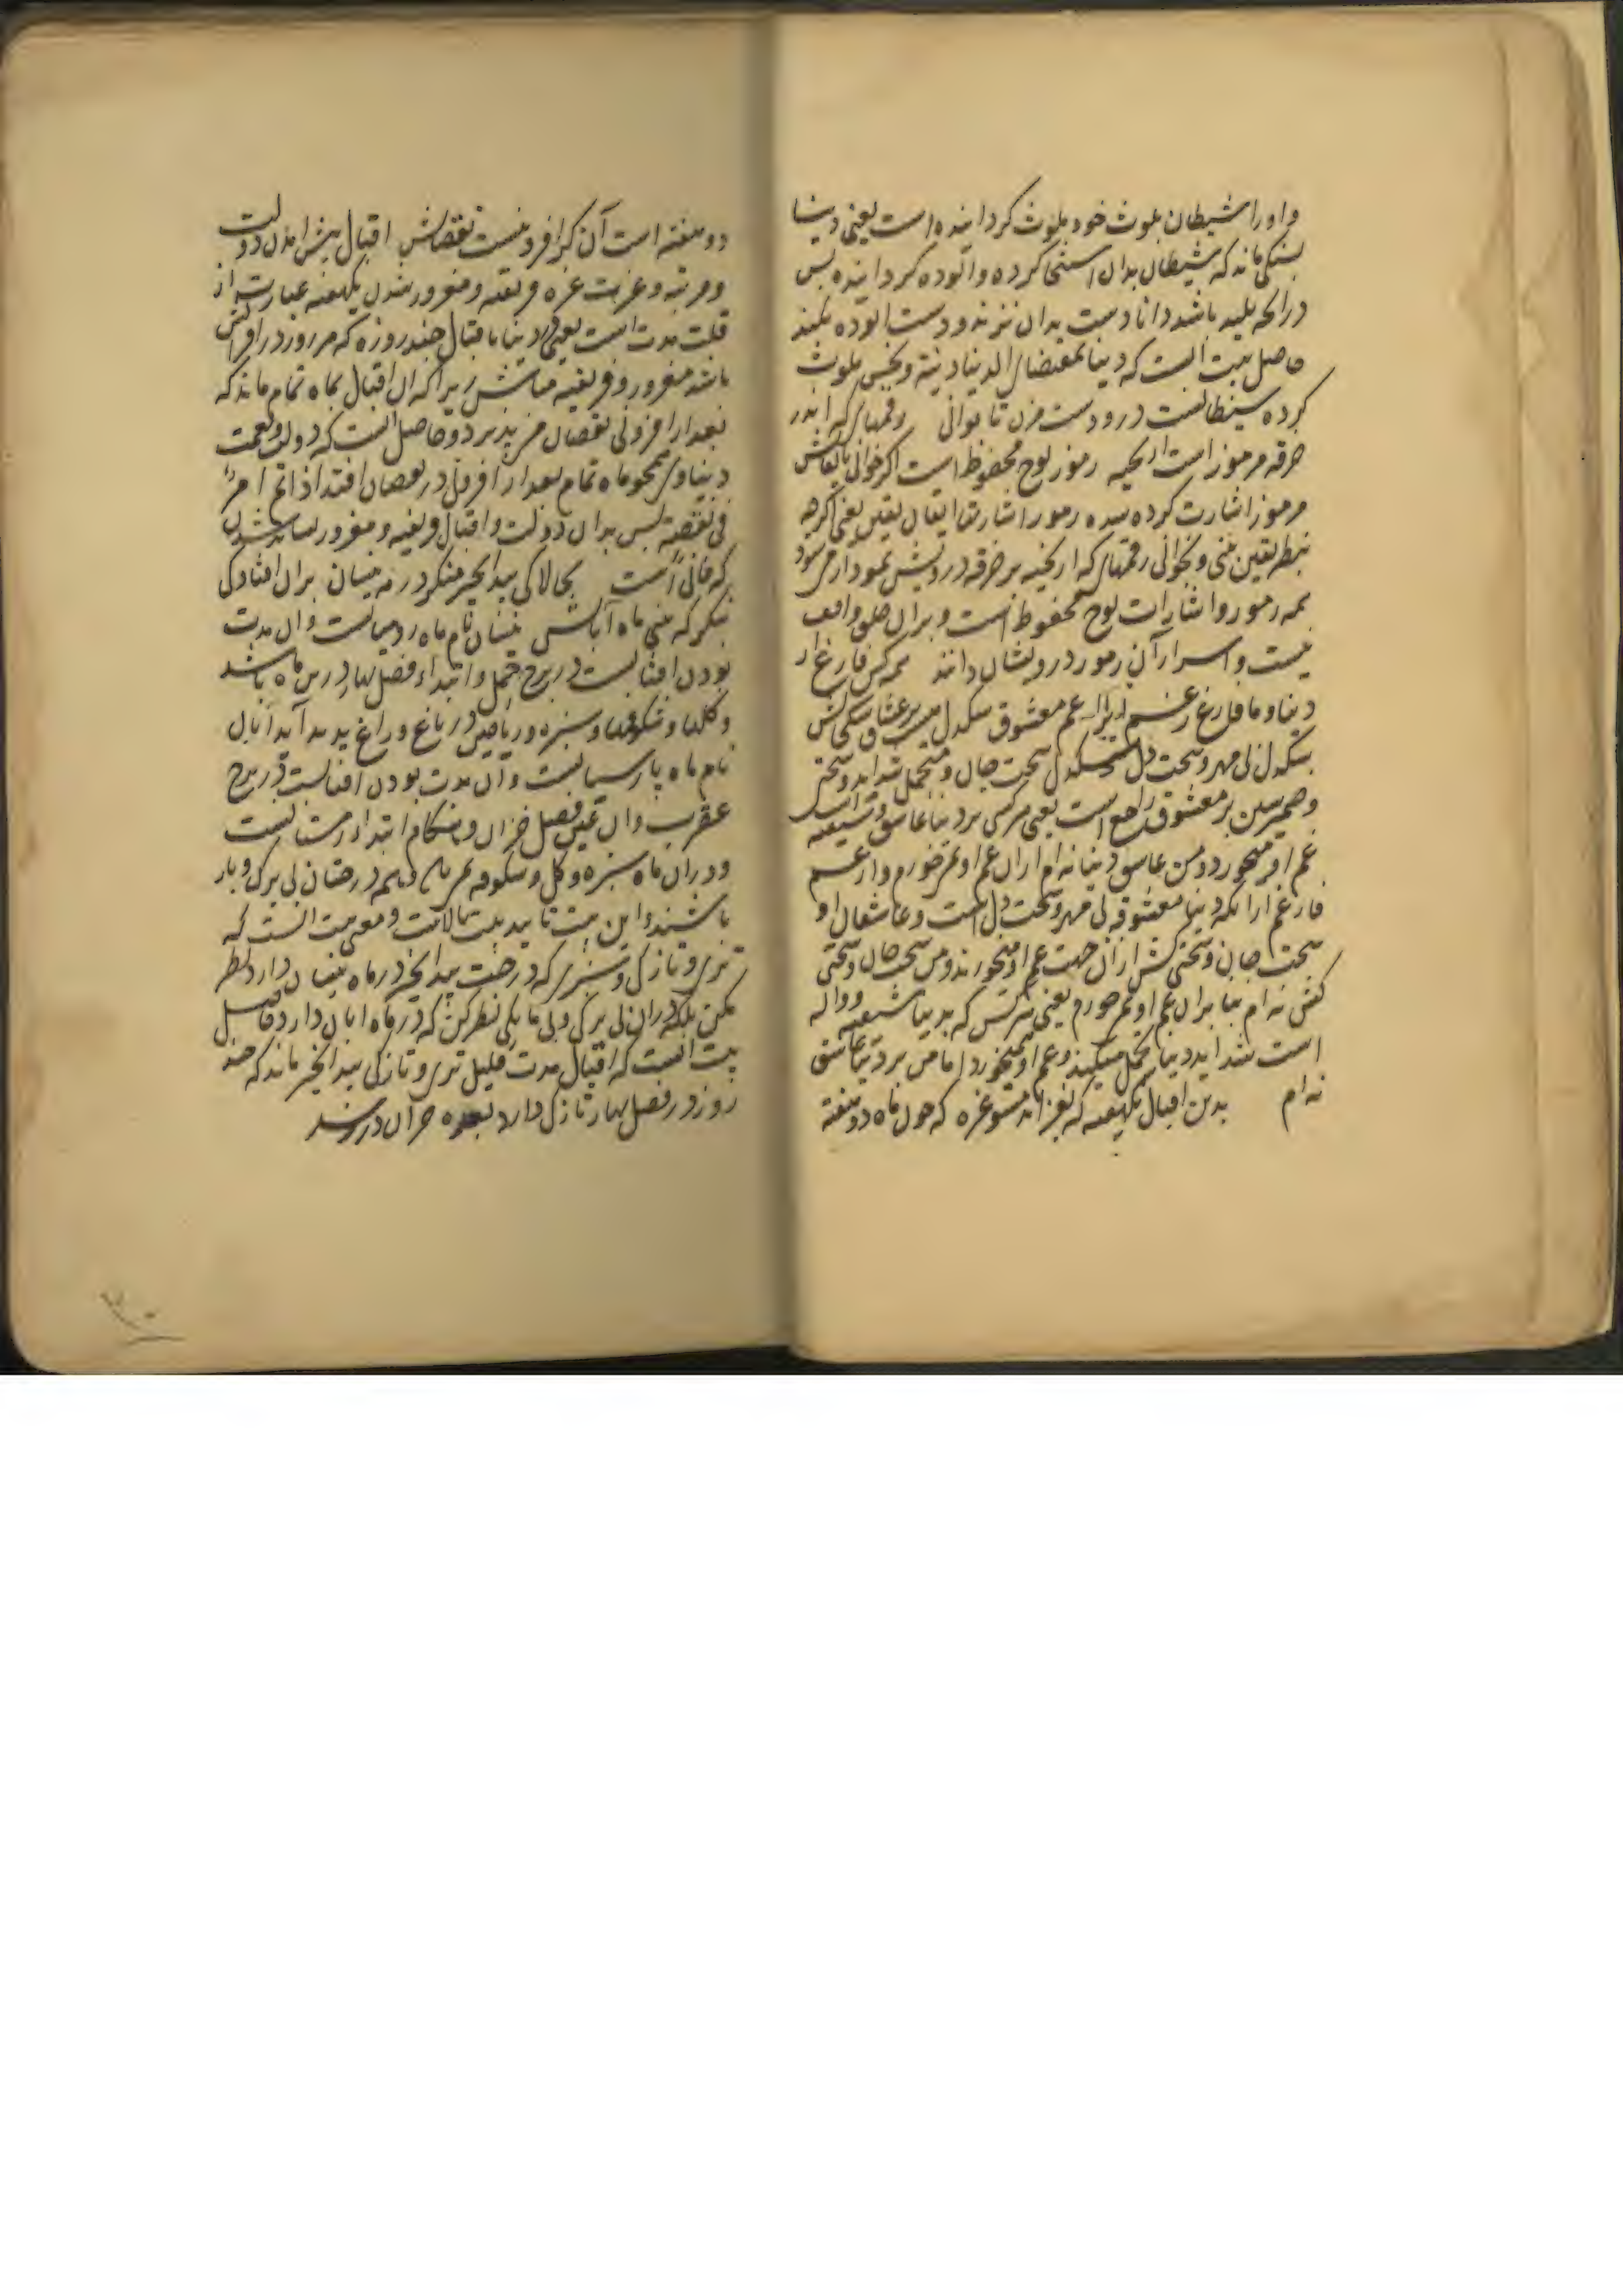 و او را شیطان بلوث خود بلوث کردانیده است یعنی دنیا
بسنکی ماند که شیطان بدان استنجا کرده و آلوده کردانیده پس
در رایحه پلید باشد دانا دست بدان نزند و دست آلوده نکند
حاصل بیت آنست که دنیا بمقتضای الدنیا دنیة و نجس بلوث
کرده شیطانست درو دست مزن تا توانی رقمهای که اندر
خرقه مرموز است از بخیه رموز لوح محفوظ است اکر خوانی بایقانش
مرموز اشارت کرده شده رموز اشارتها ایقان یقین یعنی اکر چه
بنظر یقین بینی و بخوانی رقمهای که از بخیه بر خرقه درویش نمودار میشود
همه رموز و اشارات لوح محفوظ است و بران خلق واقف
نیست و اسرار آن رموز درویشان دانند همه کس فارغ از
دنیا و ما فارغ ز غم زیرا غم معشوق سنکدل عشاق سختی کش
سنکدل بی مهر و سخت دل سخت جان و متحمل شداید و سختی
و ضمیر شین بر معشوق راجع است یعنی هر کسی بر دنیا عاشق و شیفته است
غم او میخورد و من عاشق دنیا نه ام ازان غم او نمیخورم و از غم
فارغم از آنکه دنیا معشوقه بی مهر و سخت دل است و عاشقان او
سخت جان و سختی کش ازان جهت غم او میخورند و من سخت جان و سختی
کش نه ام بنا بران غم او نمیخورم یعنی هر کس که بدنیا شیفته و واله
است شداید دنیا تحمل میکند و غم او میخورد اما من بر دنیا عاشق
نه ام بدین اقبال یکهفته که بفزاید مشو غره که چون ماه دو هفته
دو هفته است آن کز افزونیست نقصانش اقبال پیش آمدن دولت
و مرتبه و عزت غره فریفته و مغرور شدن یکهفته عبارت از
قلت مدت است یعنی دنیا باقبال چند روزه که هر روز در افزایش
باشد مغرور و فریفته مباش زیرا که آن اقبال بماه تمام ماند که
بعد از افزونی نقصان می پذیرد و حاصل آنست که دولت و نعمت
دنیاوی همچو ماه تمام بعد از افزونی در نقصان افتد اذا تم امر
فی نقصه پس بدان دولت و اقبال فریفته و مغرور نباید شدن
که فانی است بچالاکی بید انجیر منکر در مه نیسان بدان افتادکی
بنکر که بینی ماه آبانش نیسان نام ماه رومیانست و آن مدت
بودن آفتابست در برج حمل و ابتداء فصل بهار درین ماه باشد
و کلها و شکوفها و سبزه و ریاحین در باغ و راغ پدید آید آبان
نام ماه پارسیانست و آن مدت بودن آفتابست در برج
عقرب و آن عین فصل خزان و هنکام ابتداء زمستانست
و دران ماه سبزه و کل و شکوفه نمی ماند و همه درختان بی برک و بار
باشند و این بیت تایید بیت بالاست و معنی بیت آنست که
تری و تازکی و سبزی که درخت بید انجیر در ماه نیسان دارد نظر
مکن بلکه دران بی برکی و بی مایکی نظر کن که در ماه آبان دارد حاصل
بیت آنست که اقبال مدت قلیل تری و تازکی بید انجیر ماند که چند
روز در فصل بهار تازکی دارد بعده خزان در رسد
۳۰